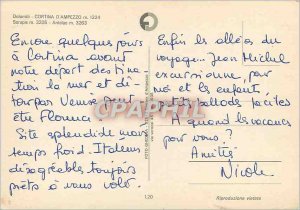 Dolomiti - CORTINA D'AMPEZZO m. 1224
Sorapis m. 3205 - Antelao m. 3263
Encore quelques jours
à Cortina avant
notre départ destina
tion la mer et dé
tour par Venise peut
être Florence
Site splendide mais
temps froid. Italiens
désagréables toujours
prêts à vous voler.
Enfin les aléas du
voyage... Jean Michel
excursionne, pour
moi et les enfants
petites ballades faciles
A quand les vacances
pour vous ?
Amitiés
Nicole
CPARAMA
120
Riproduzione vietata